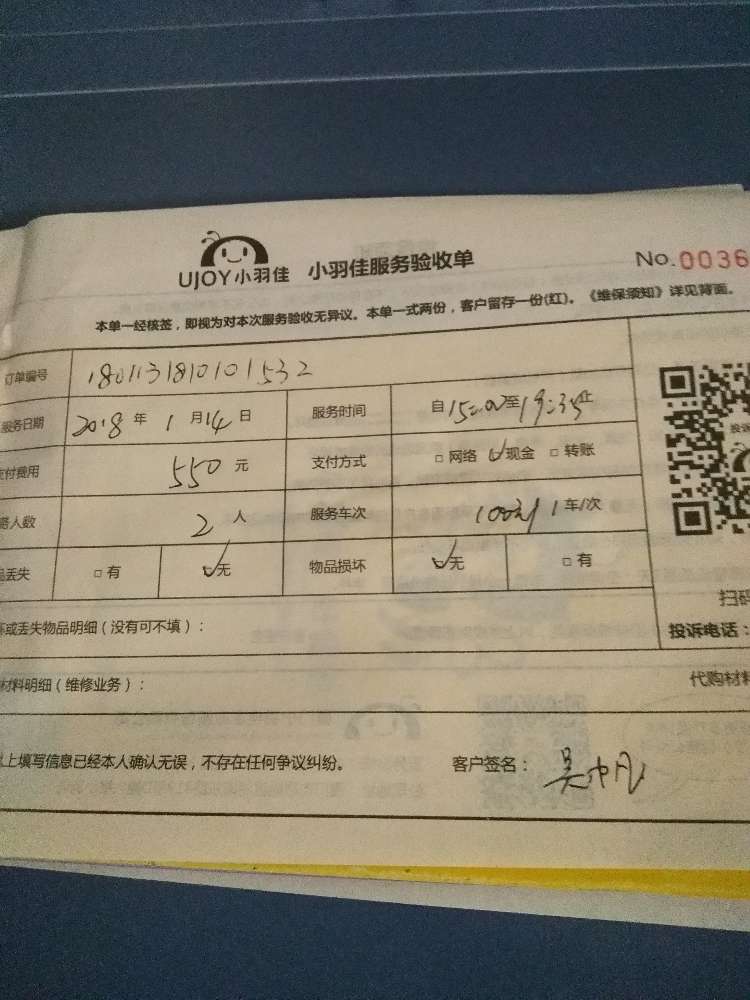 UJOY小羽佳 小羽佳服务验收单 No.0036
本单一经核签，即视为对本次服务验收无异议。本单一式两份，客户留存一份(红)。《维保须知》详见背面。
订单编号 1801131810101532
服务日期 2018 年 1 月 14 日 服务时间 自 15:00 至 19:35 止
支付费用 550 元 支付方式 □ 网络 ☑ 现金 □ 转账
人数 2 人 服务车次 1 车/次
丢失 □ 有 ☑ 无 物品损坏 ☑ 无 □ 有
扫码
坏或丢失物品明细（没有可不填）： 投诉电话：
材料明细（维修业务）： 代购材料
以上填写信息已经本人确认无误，不存在任何争议纠纷。 客户签名：